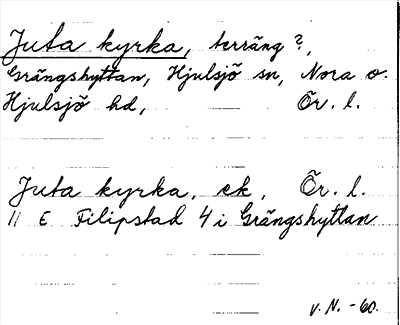 Juta kyrka, terräng?,
Grängshyttan, Hjulsjö sn, Nora o.
Hjulsjö hd, Ör. l.
Juta kyrka, ek, Ör. l.
11 E Filipstad 4 i Grängshyttan
V. N. -60.